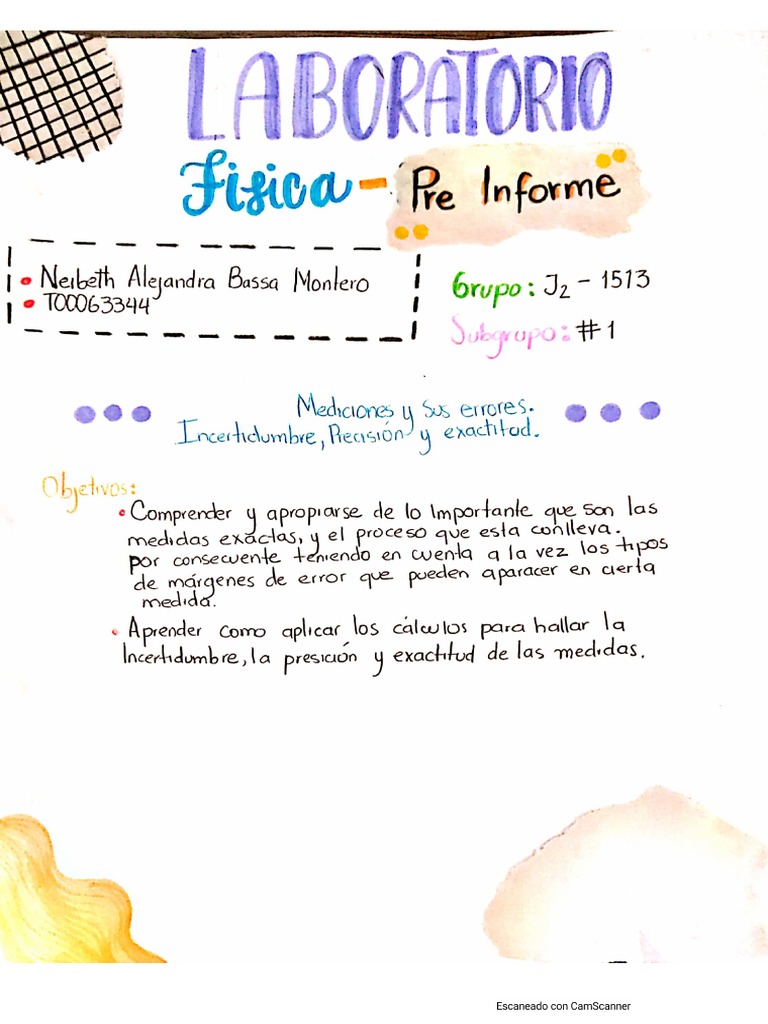 LABORATORIO
Física - Pre Informe
• Neibeth Alejandra Bassa Montero
• T00063344
Grupo: J2 - 1513
Subgrupo: #1
Mediciones y sus errores.
Incertidumbre, Precisión y exactitud.
Objetivos:
• Comprender y apropiarse de lo Importante que son las
medidas exactas, y el proceso que esta conlleva.
por consecuente teniendo en cuenta a la vez los tipos
de márgenes de error que pueden aparacer en cierta
medida.
• Aprender como aplicar los cálculos para hallar la
Incertidumbre, la presición y exactitud de las medidas.
Escaneado con CamScanner